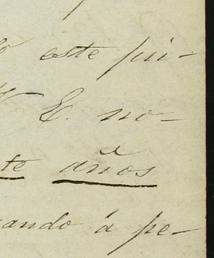 este pu-
V. E. no-
te anos
ando á pe-